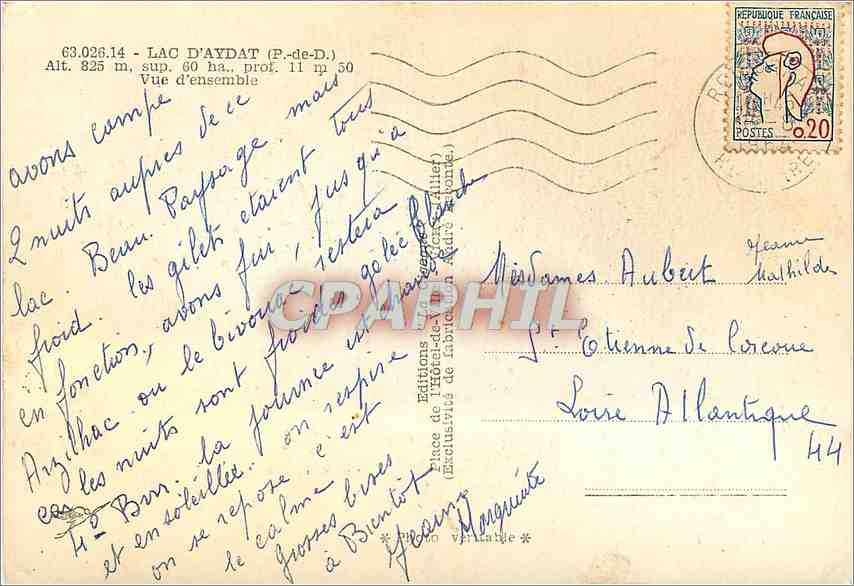 63.026.14 - LAC D'AYDAT (P.-de-D.)
Alt. 825 m, sup. 60 ha., prof. 11 m 50
Vue d'ensemble
avons campé
2 nuits auprès de ce
lac. Beau Paysage mais
froid. les gilets étaient tous
en fonction, avons fui, jusqu'à
Arzilhac ou le bivouac restera
les nuits sont froides gelée blanche
4° Brrr. la journée est chaude
et ensoleillée. on respire
on se repose c'est
le calme
grosses bises
à Bientôt
Jean
Marguerite
Editions "La Cigogne"
Place de l'Hôtel-de-Ville, VICHY (Allier)
(Exclusivité de fabrication André Leconte.)
* Photo véritable *
CPARPHIL
REPUBLIQUE FRANÇAISE
POSTES 0,20
Mesdames Aubert Jeanne
Mathilde
St Etienne de Corcoue
Loire Atlantique
44